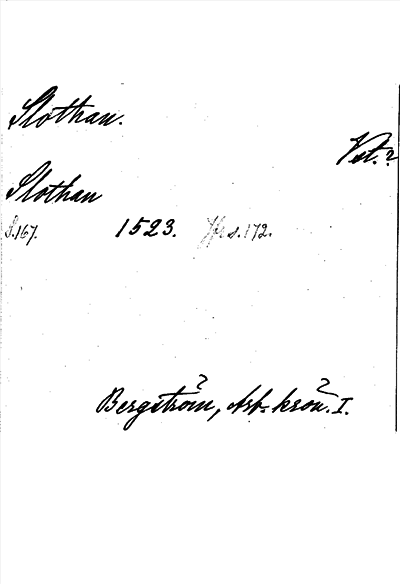 Slothan.
Vet.?
Slothan
S. 167. 1523. Jfr s. 172.
Bergström, Arb. krön. I.